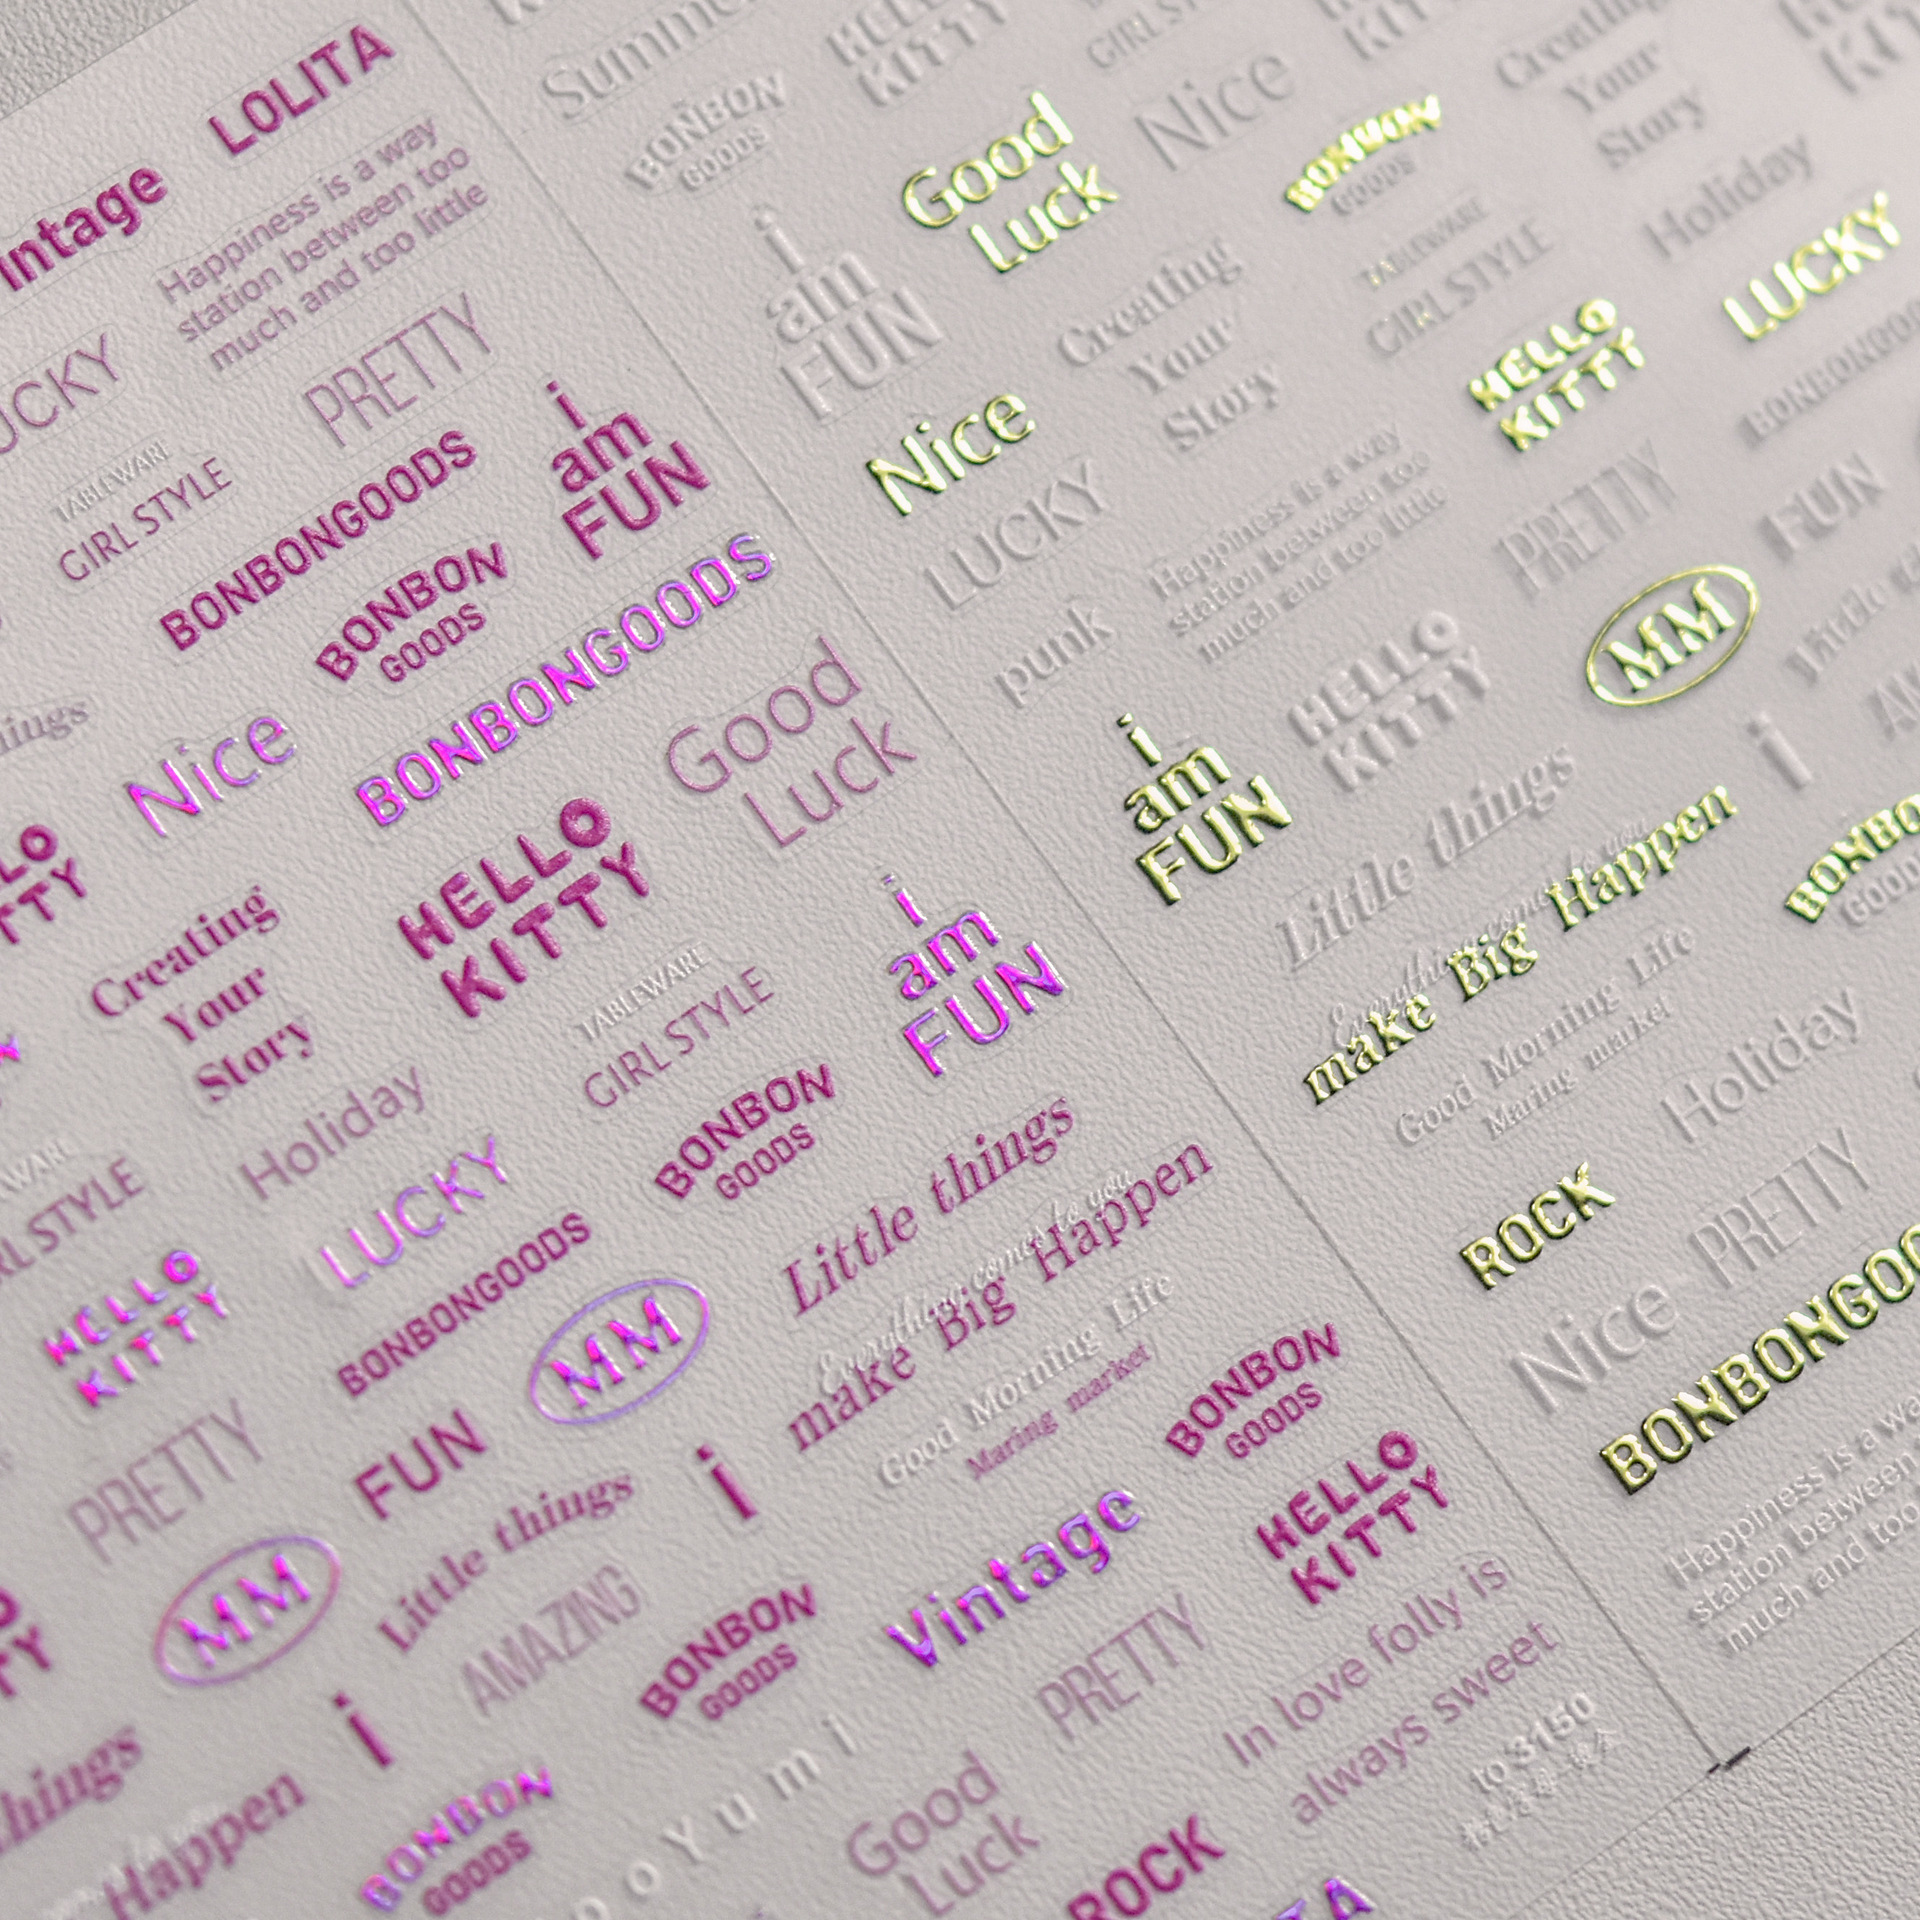 LOLITA
intage
Happiness is a way
station between too
much and too little
UCKY
PRETTY
TABLEWARE
GIRL STYLE
BONBONGOODS
i
am
FUN
BONBON
GOODS
BONBONGOODS
hings
Nice
Good
Luck
HELLO
KITTY
LO
TTY
Creating
Your
Story
TABLEWARE
GIRL STYLE
i
am
FUN
Holiday
BONBON
GOODS
WARE
RL STYLE
LUCKY
Little things
Everything comes to you
make Big Happen
Good Morning Life
Maring market
HELLO
KITTY
BONBONGOODS
MM
BONBON
GOODS
PRETTY
FUN
i
HELLO
KITTY
Little things
Vintage
MM
AMAZING
BONBON
GOODS
PRETTY
In love folly is
always sweet
TY
i
things
Happen
BONBON
GOODS
o o Y u m i
Good
Luck
ROCK
TA
to 3150
Summe
HELLO
KITTY
GIRL STYLE
KITTY
Creating
Your
Story
KITTY
BONBON
GOODS
Good
Luck
Nice
BONBON
GOODS
Holiday
i
am
FUN
Creating
Your
Story
TABLEWARE
GIRL STYLE
LUCKY
Nice
HELLO
KITTY
BONBONGOO
LUCKY
Happiness is a way
station between too
much and too little
PRETTY
FUN
punk
HELLO
KITTY
MM
Little th
i
am
FUN
Little things
i
AM
Everything comes to you
make Big Happen
BONBO
GOOD
Good Morning Life
Maring market
Holiday
ROCK
PRETTY
Nice
BONBONGOO
Happiness is a wa
station between
much and too